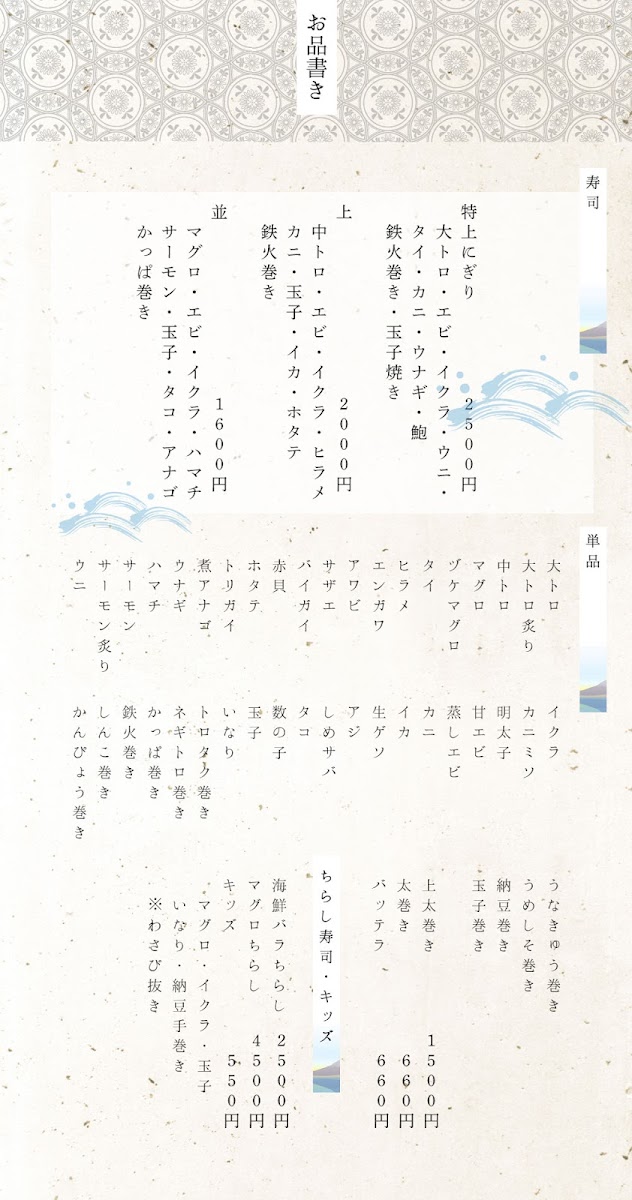 お品書き
寿司
特上にぎり 2500円
大トロ・エビ・イクラ・ウニ・
タイ・カニ・ウナギ・鮑
鉄火巻き・玉子焼き
上 2000円
中トロ・エビ・イクラ・ヒラメ
カニ・玉子・イカ・ホタテ
鉄火巻き
並 1600円
マグロ・エビ・イクラ・ハマチ
サーモン・玉子・タコ・アナゴ
かっぱ巻き
単品
大トロ
大トロ炙り
中トロ
マグロ
ヅケマグロ
タイ
ヒラメ
エンガワ
アワビ
サザエ
バイガイ
赤貝
ホタテ
トリガイ
煮アナゴ
ウナギ
ハマチ
サーモン
サーモン炙り
ウニ
イクラ
カニミソ
明太子
甘エビ
蒸しエビ
カニ
イカ
生ゲソ
アジ
しめサバ
タコ
数の子
玉子
いなり
トロタク巻き
ネギトロ巻き
かっぱ巻き
鉄火巻き
しんこ巻き
かんぴょう巻き
うなきゅう巻き
うめしそ巻き
納豆巻き
玉子巻き
上太巻き 1500円
太巻き 660円
バッテラ 660円
ちらし寿司・キッズ
海鮮バラちらし 2500円
マグロちらし 4500円
キッズ 550円
マグロ・イクラ・玉子
いなり・納豆手巻き
※わさび抜き